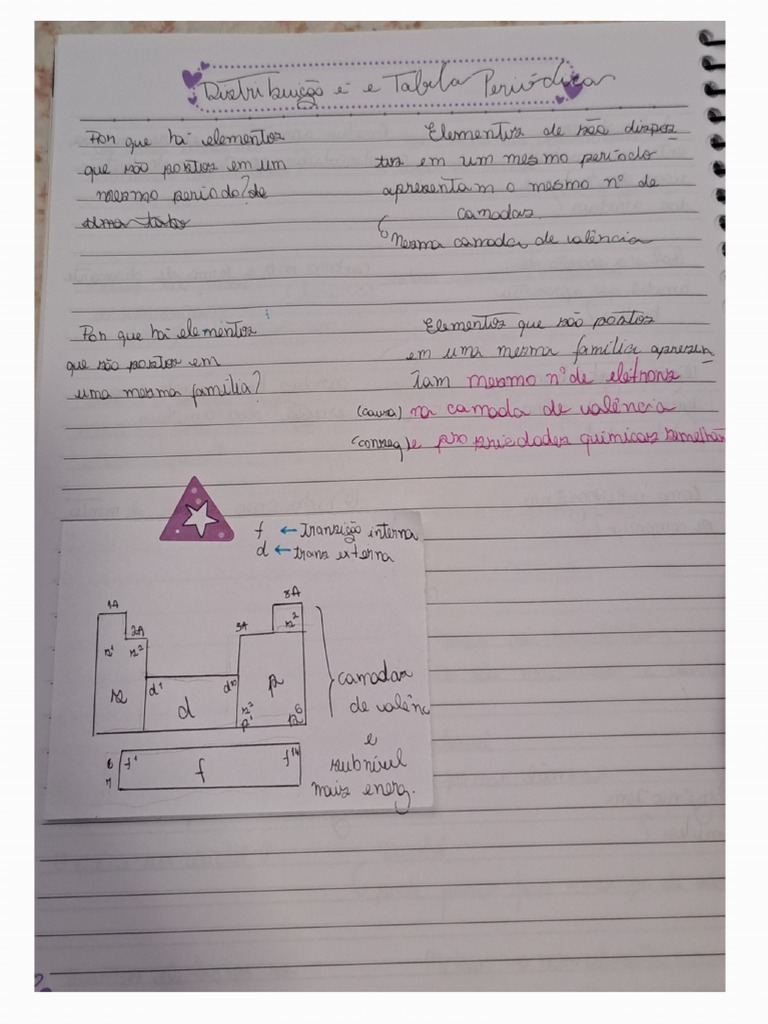 Distribuição e⁻ e Tabela Periódica
Por que há elementos
que são postos em um
mesmo período? de
uma tabe
Elementos de são dispos
tos em um mesmo período
apresentam o mesmo nº de
camadas.
mesma camada de valência
Por que há elementos
que são postos em
uma mesma família?
Elementos que são postos
em uma mesma família apresen
tam mesmo nº de elétrons
(causa) na camada de valência
(conseq) e propriedades químicas semelhan
f ← Transição interna
d ← trans externa
1A
2A
3A
8A
s¹ s²
s²
s
d¹
d¹⁰
d
p
s²
p¹
p⁶
camadas
de valênc
e
subnível
mais energ.
6
7
f¹
f
f¹⁴